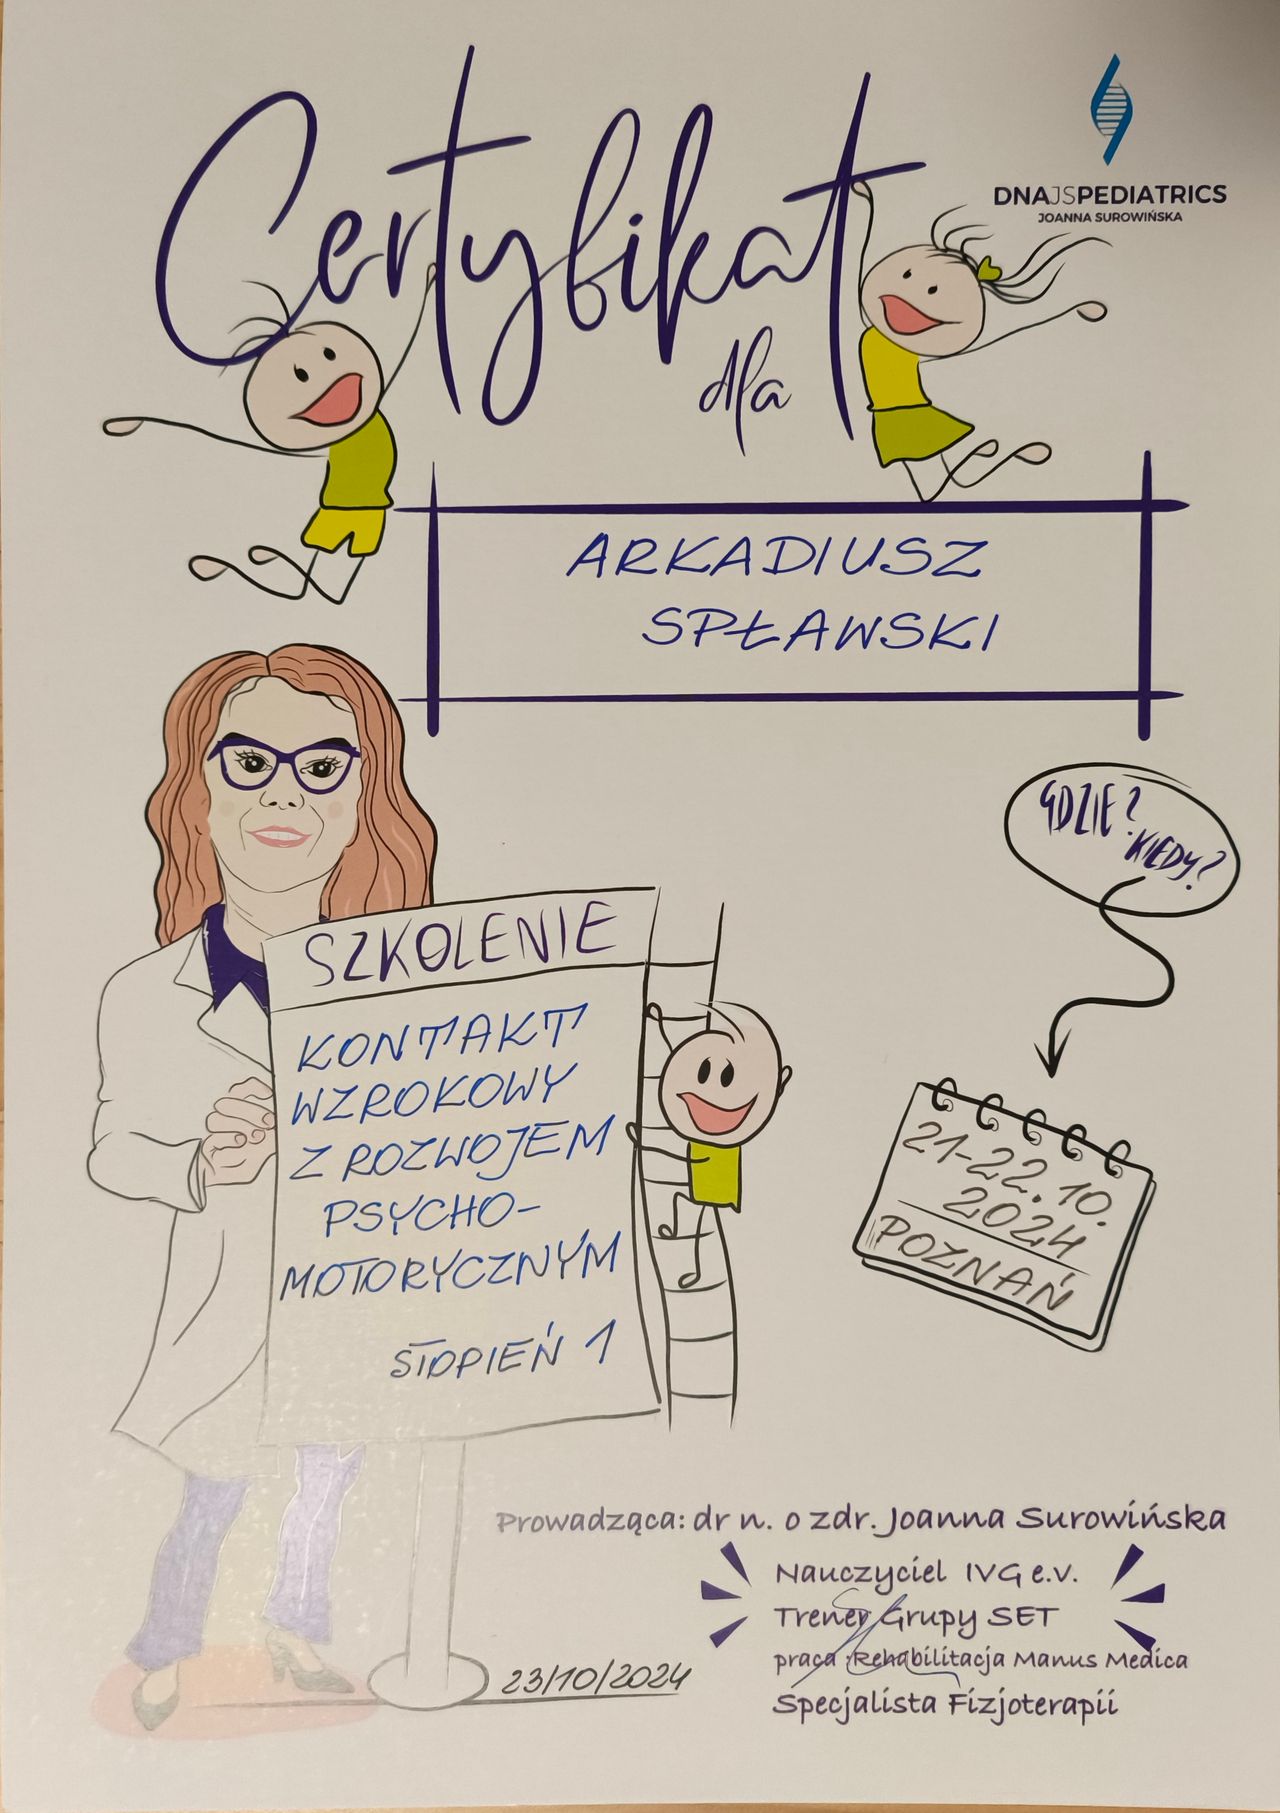 Certyfikat
dla
DNAJSPEDIATRICS
JOANNA SUROWIŃSKA
ARKADIUSZ
SPŁAWSKI
GDZIE?
KIEDY?
SZKOLENIE
KONTAKT
WZROKOWY
Z ROZWOJEM
PSYCHO-
MOTORYCZNYM
STOPIEŃ 1
21-22.10.
2024
POZNAŃ
Prowadząca: dr n. o zdr. Joanna Surowińska
Nauczyciel IVG e.V.
Trener Grupy SET
praca: Rehabilitacja Manus Medica
Specjalista Fizjoterapii
23/10/2024